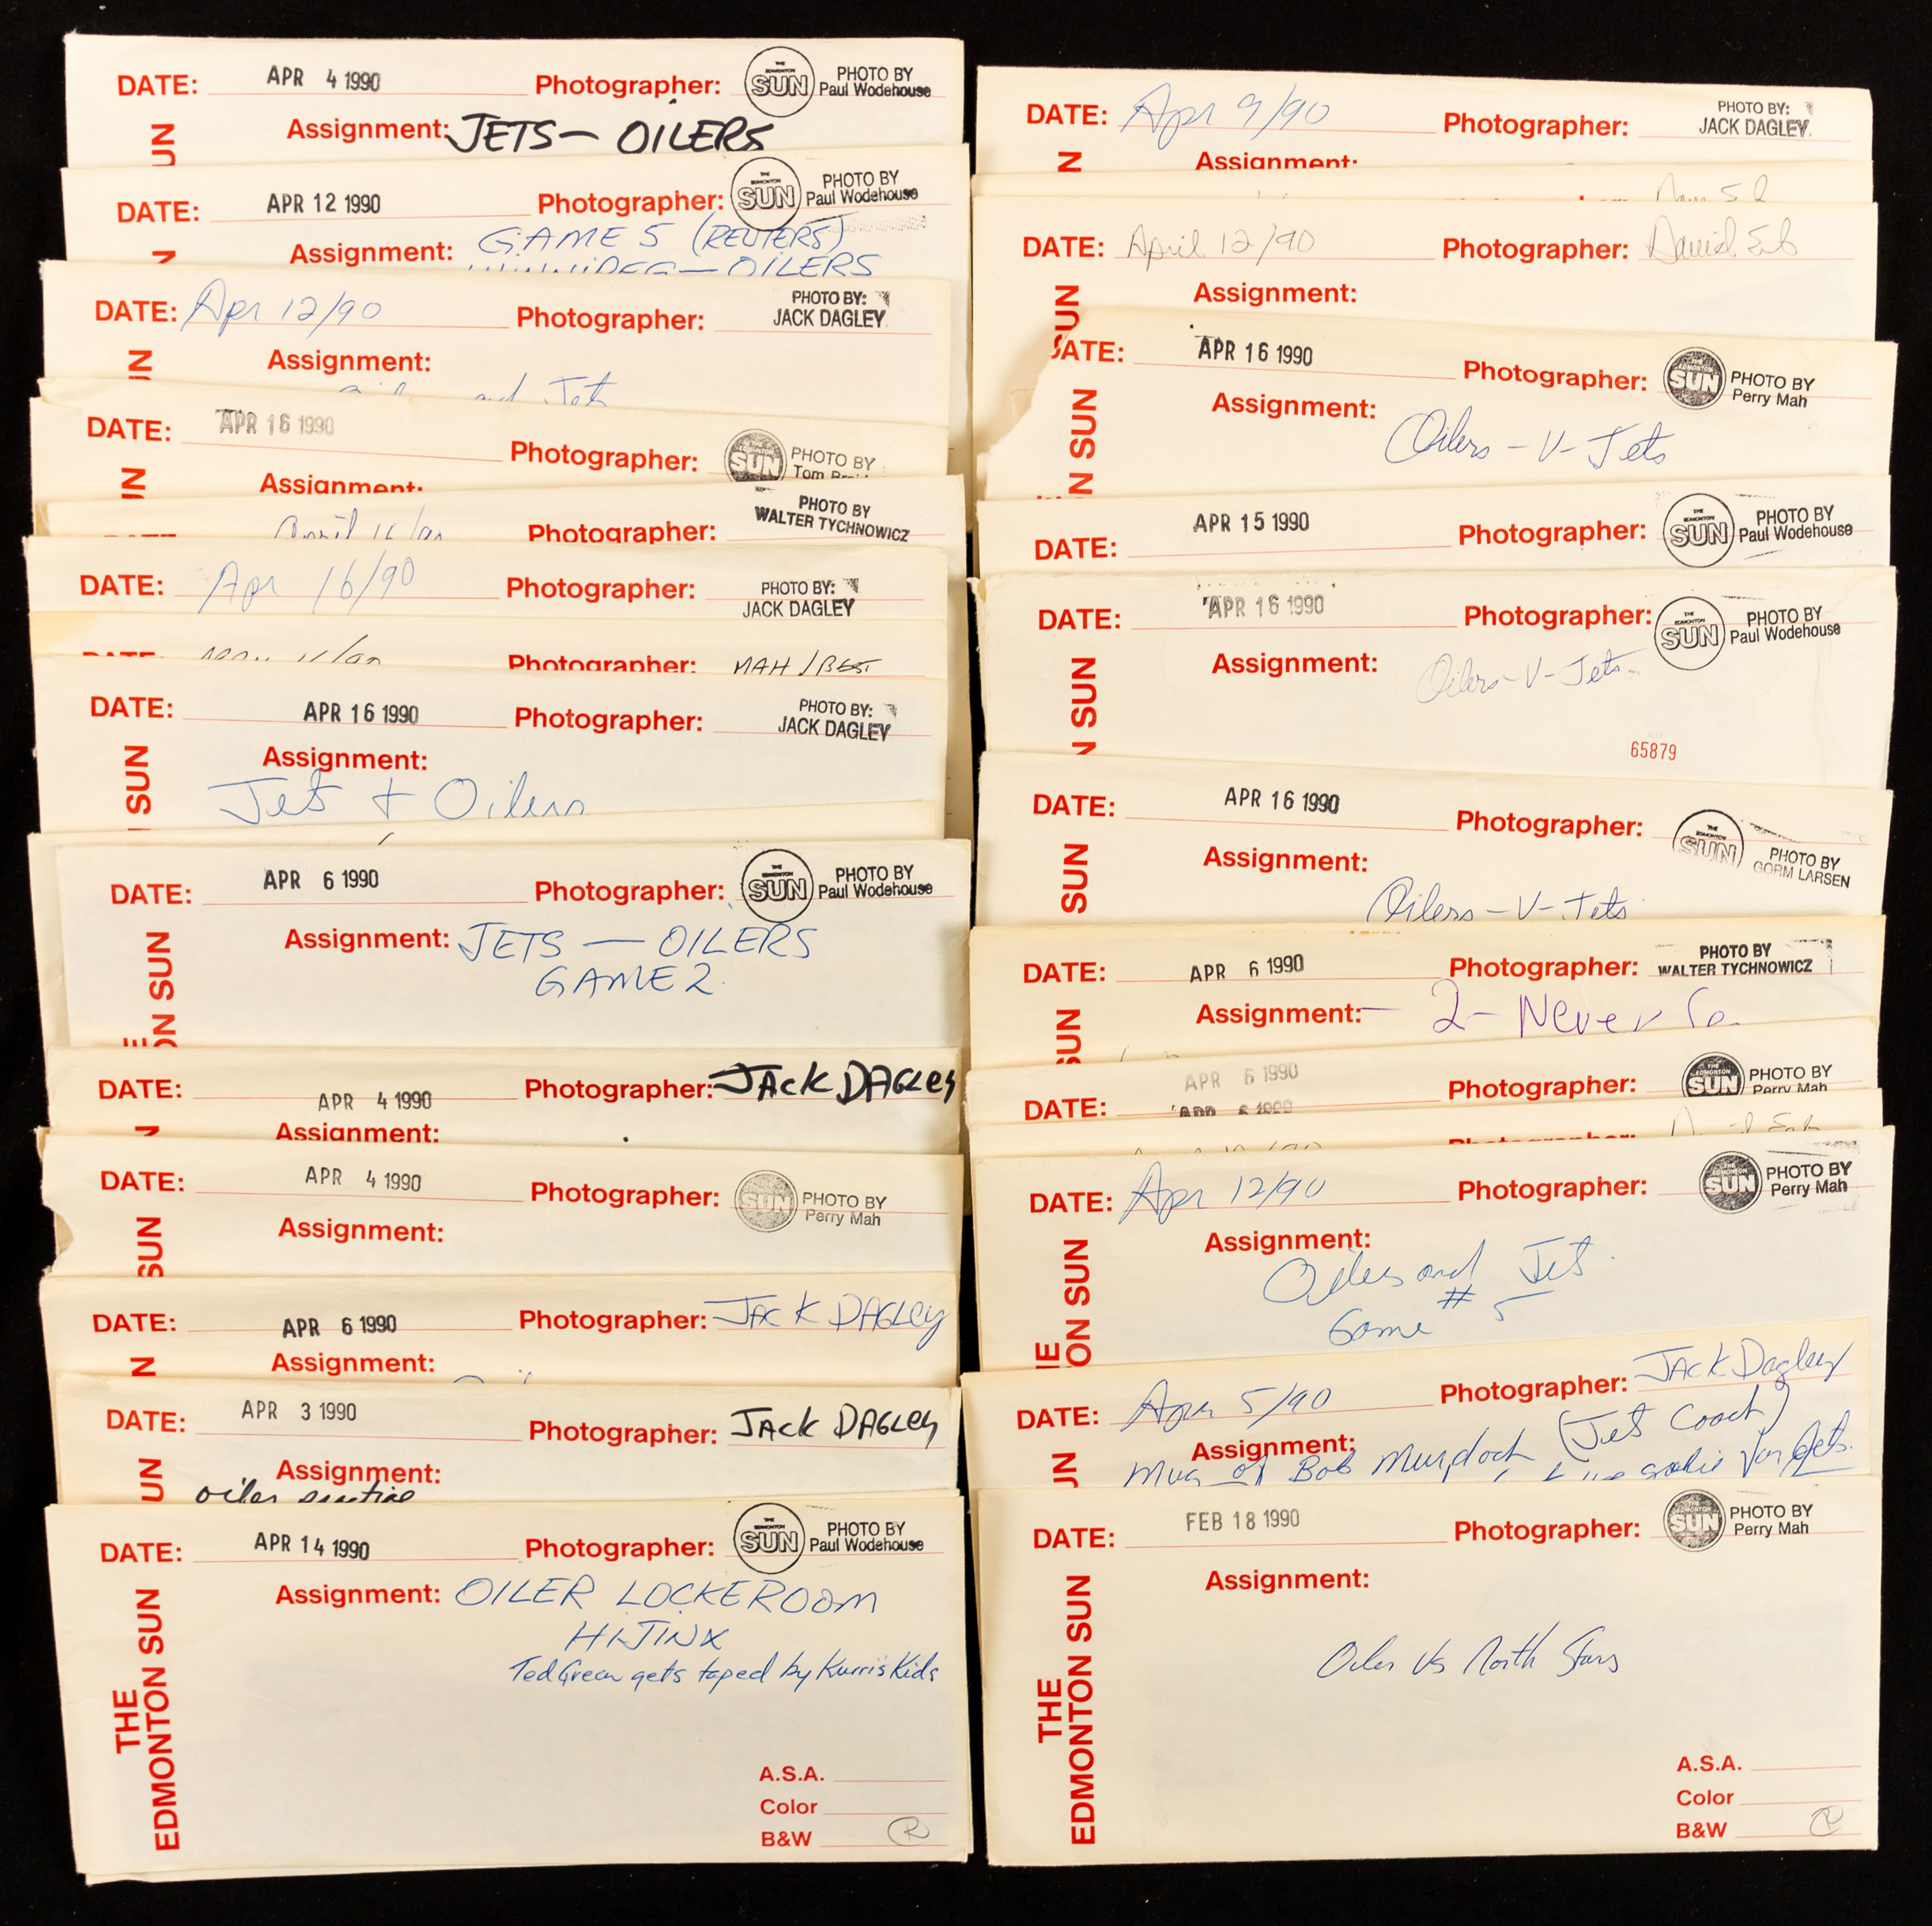 DATE: APR 4 1990 Photographer: THE EDMONTON SUN PHOTO BY Paul Wodehouse
UN Assignment: JETS - OILERS
DATE: APR 12 1990 Photographer: THE EDMONTON SUN PHOTO BY Paul Wodehouse
N Assignment: GAME 5 (REUTERS)
WINNIPEG - OILERS
DATE: Apr 12/90 Photographer: PHOTO BY: JACK DAGLEY
N Assignment:
and Jets
DATE: APR 16 1990 Photographer: SUN PHOTO BY Tom
N Assignment:
April 16/90 Photographer: PHOTO BY WALTER TYCHNOWICZ
DATE: Apr 16/90 Photographer: PHOTO BY: JACK DAGLEY
DATE: Photographer: MAH / BEST
DATE: APR 16 1990 Photographer: PHOTO BY: JACK DAGLEY
SUN Assignment:
Jets + Oilers
DATE: APR 6 1990 Photographer: THE EDMONTON SUN PHOTO BY Paul Wodehouse
ON SUN Assignment: JETS - OILERS
GAME 2
DATE: APR 4 1990 Photographer: JACK DAGLEY
Assignment:
DATE: APR 4 1990 Photographer: SUN PHOTO BY Perry Mah
SUN Assignment:
DATE: APR 6 1990 Photographer: JACK DAGLEY
N Assignment:
DATE: APR 3 1990 Photographer: JACK DAGLEY
UN Assignment:
oiler practice
DATE: APR 14 1990 Photographer: THE EDMONTON SUN PHOTO BY Paul Wodehouse
THE EDMONTON SUN Assignment: OILER LOCKEROOM
HIJINX
Ted Green gets taped by Kurri's Kids
A.S.A.
Color
B&W R
DATE: Apr 9/90 Photographer: PHOTO BY: JACK DAGLEY
N Assignment:
DATE: April 12/90 Photographer: David
SUN Assignment:
DATE: APR 16 1990 Photographer: THE EDMONTON SUN PHOTO BY Perry Mah
N SUN Assignment: Oilers - V - Jets
DATE: APR 15 1990 Photographer: THE EDMONTON SUN PHOTO BY Paul Wodehouse
DATE: APR 16 1990 Photographer: THE EDMONTON SUN PHOTO BY Paul Wodehouse
N SUN Assignment: Oilers - V - Jets
65879
DATE: APR 16 1990 Photographer: THE EDMONTON SUN PHOTO BY GORM LARSEN
SUN Assignment:
Oilers - V - Jets
DATE: APR 6 1990 Photographer: PHOTO BY WALTER TYCHNOWICZ
SUN Assignment: - 2 - Never
APR 6 1990
DATE: APR 6 1990 Photographer: THE EDMONTON SUN PHOTO BY Perry Mah
Photographer:
DATE: Apr 12/90 Photographer: THE EDMONTON SUN PHOTO BY Perry Mah
ON SUN Assignment:
Oilers and Jets
Game # 5
DATE: Apr 5/90 Photographer: JACK Dagley
UN Assignment: Mug of Bob Murdoch (Jet Coach)
goalie for Jets.
DATE: FEB 18 1990 Photographer: THE EDMONTON SUN PHOTO BY Perry Mah
THE EDMONTON SUN Assignment:
Oiler vs North Stars
A.S.A.
Color
B&W R